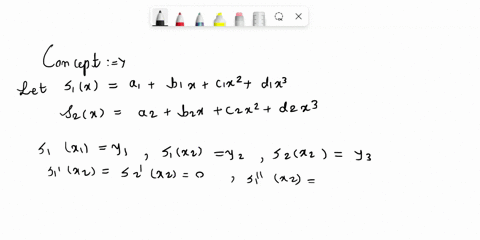 Concept :->
Let s₁(x) = a₁ + b₁x + c₁x² + d₁x³
S₂(x) = a₂ + b₂x + c₂x² + d₂x³
s₁(x₁) = y₁ , s₁(x₂) = y₂ , s₂(x₂) = y₃
s₁'(x₂) = s₂'(x₂) = 0 , s₁''(x₂) =